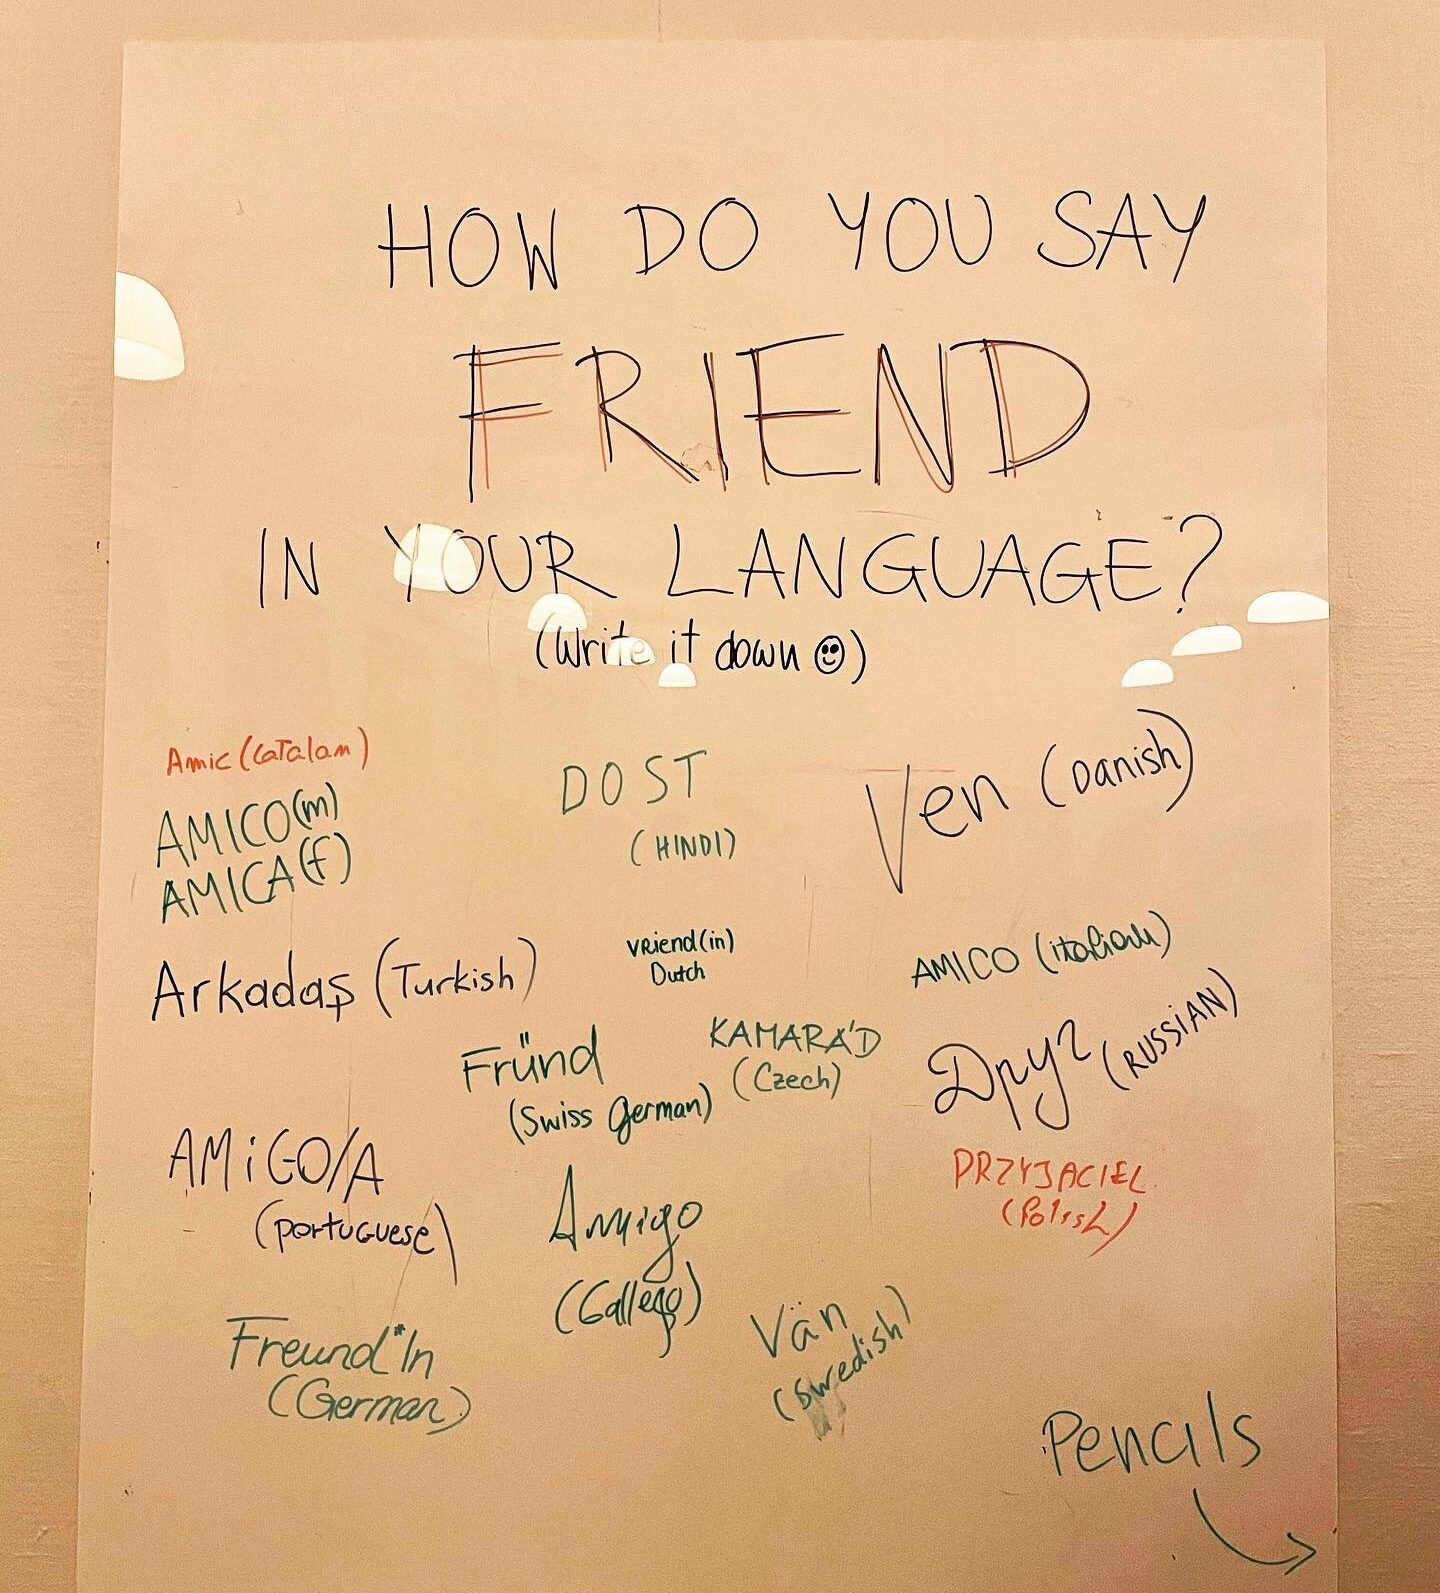 HOW DO YOU SAY
FRIEND
IN YOUR LANGUAGE?
(Write it down ☺)
Amic (Catalan)
AMICO (m)
AMICA (f)
DOST
(HINDI)
Ven (Danish)
Arkadaş (Turkish)
vriend(in)
Dutch
AMICO (italiano)
Fründ
(Swiss German)
KAMARÁD
(Czech)
Друг (RUSSIAN)
AMiGO/A
(portuguese)
Amigo
(Gallego)
PRZYJACIEL
(Polish)
Freund*In
(German)
Vän
(Swedish)
Pencils